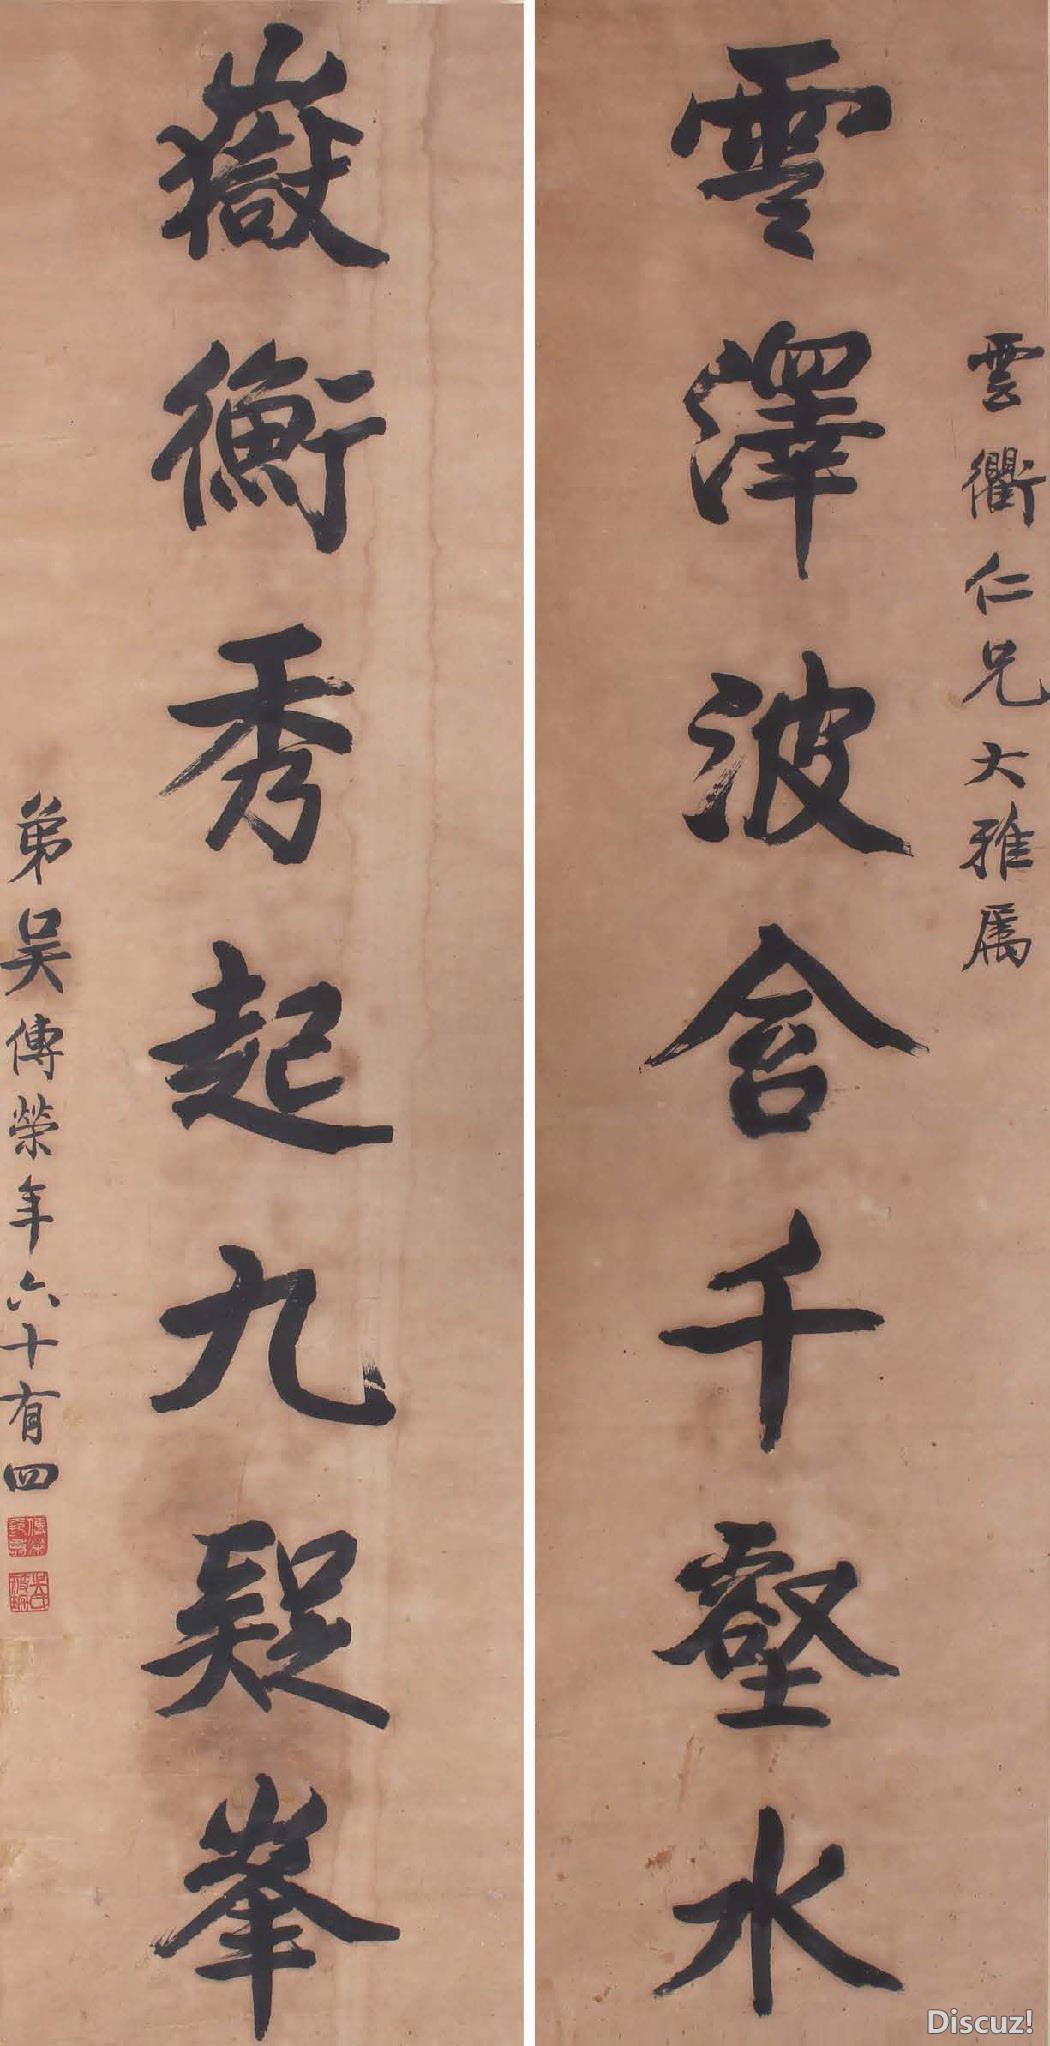 雲衢仁兄大雅属
雲澤波含千壑水
嶽衡秀起九疑峯
弟吴傳榮年六十有四
Discuz!